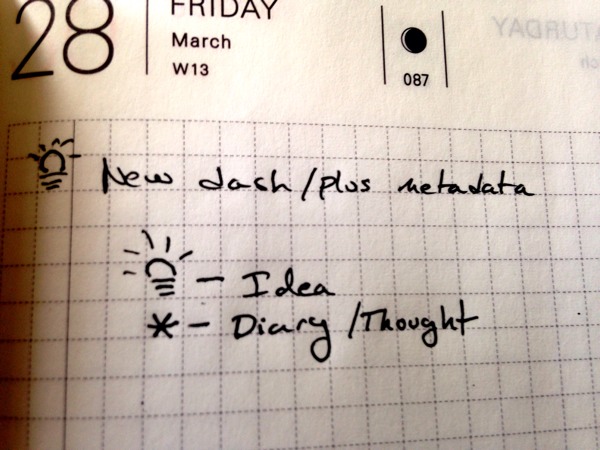 28 FRIDAY
March
W13
087
SATURDAY
New dash/plus metadata
- Idea
* - Diary/Thought